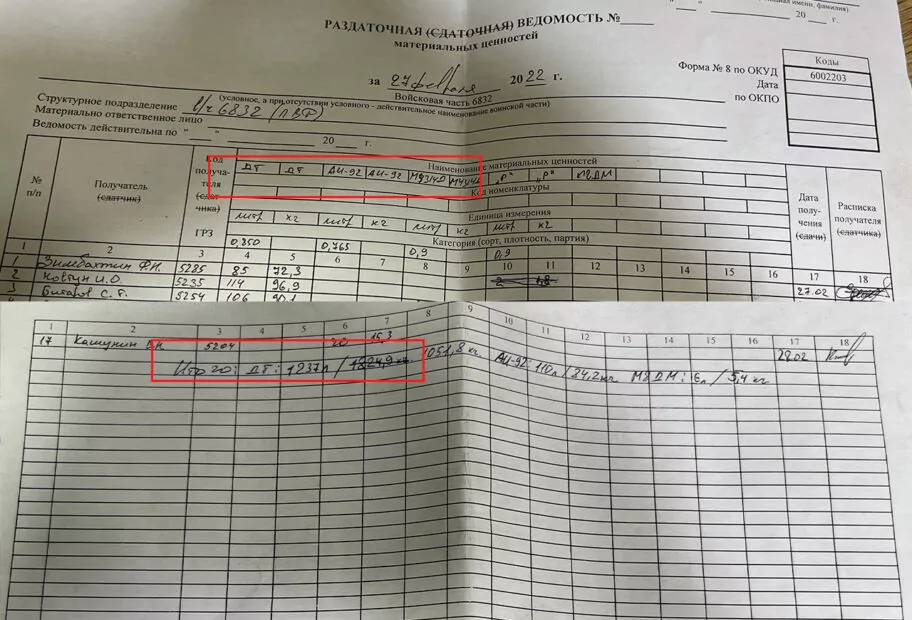 РАЗДАТОЧНАЯ (СДАТОЧНАЯ) ВЕДОМОСТЬ №
20 г.
материальных ценностей
Коды
Форма № 8 по ОКУД 6002203
за 27 февраля 2022 г.
Дата
Войсковая часть 6832
по ОКПО
(условное, а при отсутствии условного - действительное наименование воинской части)
Структурное подразделение в/ч 6832
Материально ответственное лицо
Ведомость действительна по " " 20 г.
№ п/п
Получатель (сдатчик)
Код получателя (сдатчика)
ГРЗ
Наименование материальных ценностей
ДТ ДТ АИ-92 АИ-92
Код номенклатуры
Единица измерения
литр кг литр кг литр кг литр кг
Категория (сорт, плотность, партия)
0,850 0,765 0,9 0,9
Дата получения (сдачи)
Расписка получателя (сдатчика)
1 2 3 4 5 6 7 8 9 10 11 12 13 14 15 16 17 18
1 5285 85 72,3
2 Ковтун И.О. 5235 114 96,9
3 5254 106 90,1 27.02
1 2 3 4 5 6 7 8 9 10 11 12 13 14 15 16 17 18
17 5204 20 15,3
Итого: ДТ: 1237л / 1051,8 кг. АИ-92 110л / 84,2кг М8ДМ: 6л / 5,4 кг